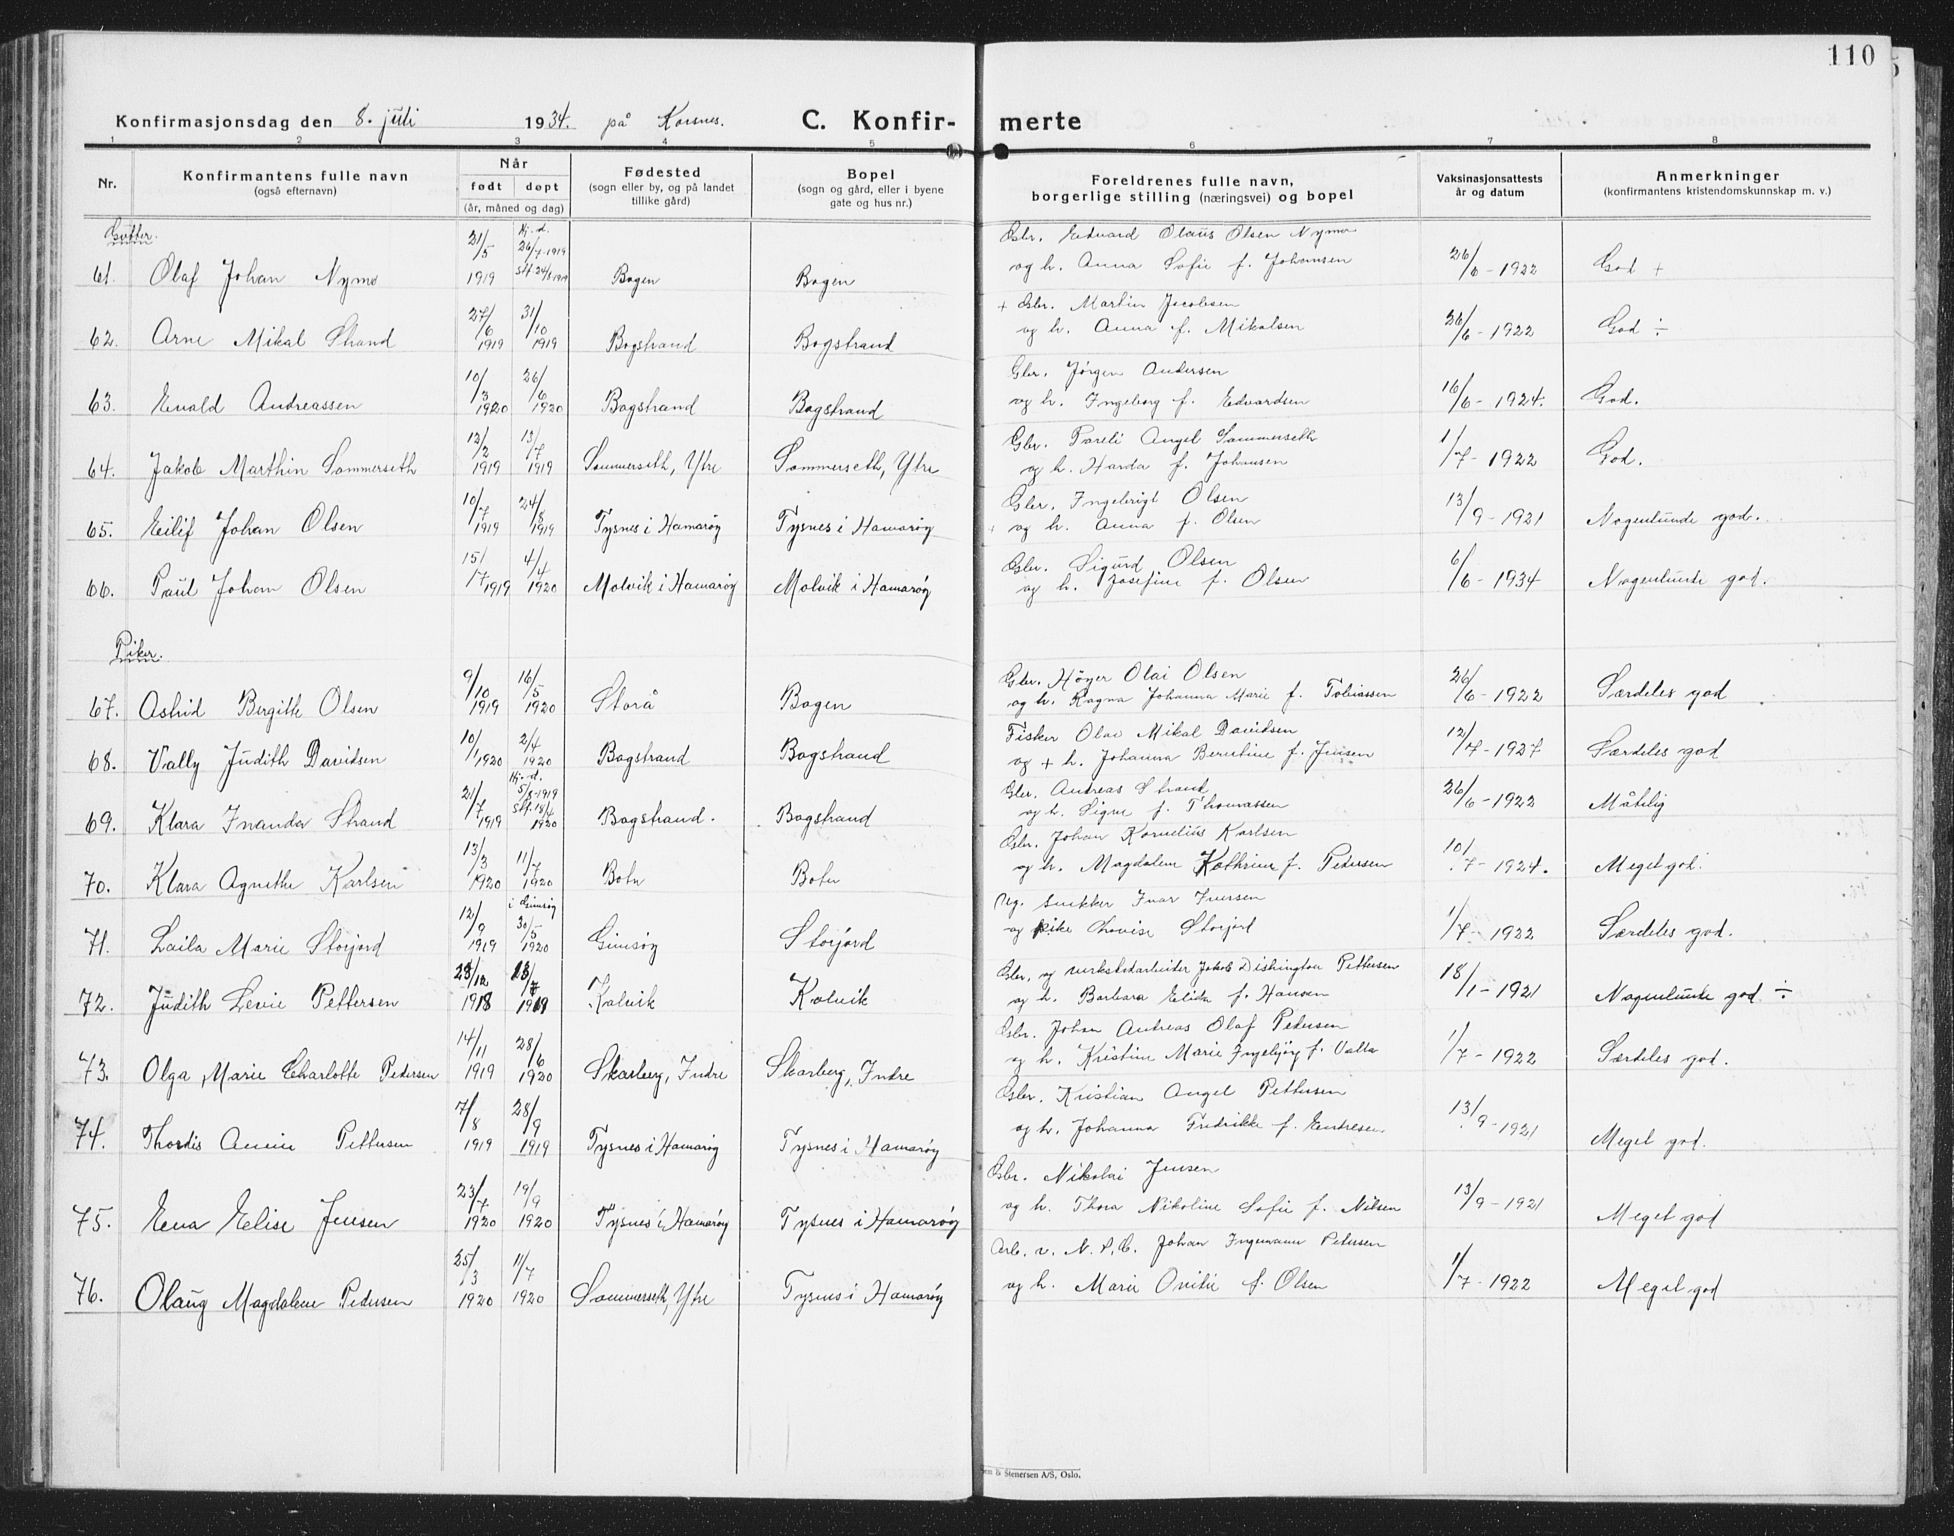 110
Konfirmasjonsdag den 8. juli 1934. på Korsnes. C. Konfir- merte
1 2 3 4 5 6 7 8
Nr. Konfirmantens fulle navn (også efternavn) Når født døpt (år, måned og dag) Fødested (sogn eller by, og på landet tillike gård) Bopel (sogn og gård, eller i byene gate og hus nr.) Foreldrenes fulle navn, borgerlige stilling (næringsvei) og bopel Vaksinasjonsattests år og datum Anmerkninger (konfirmantens kristendomskunnskap m. v.)
Gutter.
61. Olaf Johan Nymo 21/5 1919 Hj. d. 26/7-1919 Stf. 24/8 1919 Bogen Bogen Gbr. Edvard Olaus Olsen Nymo og h. Anna Sofie f. Johansen 26/6-1922 God +
62. Arne Mikal Strand 27/6 1919 31/10 1919 Bogstrand Bogstrand + Gbr. Martin Jacobsen og h. Anna f. Mikalsen 26/6-1922 God ÷
63. Evald Andreassen 10/3 1920 26/6 1920 Bogstrand Bogstrand Gbr. Jørgen Andersen og h. Ingeborg f. Edvardsen 16/6-1924. God.
64. Jakob Marthin Sommerseth 12/2 1919 13/7 1919 Sommerseth, Ytre Sommerseth, Ytre Gbr. Pareli Angel Sommerseth og h. Harda f. Johansen 1/7-1922 God.
65. Eilif Johan Olsen 10/7 1919 24/8 1919 Tysnes i Hamarøy Tysnes i Hamarøy Gbr. Ingebrigt Olsen + og h. Anna f. Olsen 13/9-1921 Nogenlunde god.
66. Paul Johan Olsen 15/7 1919 4/4 1920 Molvik i Hamarøy Molvik i Hamarøy Gbr. Sigurd Olsen og h. Josefine f. Olsen 6/6-1934 Nogenlunde god.
Piker.
67. Astrid Bergitte Olsen 9/10 1919 16/5 1920 Storå Bogen Gbr. Höyer Olai Olsen og h. Ragna Johanna Marie f. Tobiassen 26/6-1922 Særdeles god
68. Vally Judith Davidsen 10/1 1920 2/4 1920 Bogstrand Bogstrand Fisker Olav Mikal Davidsen og + h. Johanna Berntine f. Jensen 12/7-1927 Særdeles god
69. Klara Inanda Strand 21/7 1919 Hj. d. 5/8-1919 Stf. 18/4 1920 Bogstrand. Bogstrand Gbr. Andreas Strand og h. Signe f. Thomassen 26/6-1922 Måtelig
70. Klara Agnethe Karlsen 13/3 1920 11/7 1920 Botn Botn Gbr. Johan Kornelius Karlsen og h. Magdalene Kathrine f. Pedersen 10/7-1924. Meget god.
71. Laila Marie Storjord 12/9 1919 i Gimsøy 30/5 1920 Gimsøy Storjord Ug. snikker Ivar Iversen og pike Lovise Storjord 1/7-1922 Særdeles god.
72. Judith Levie Pettersen 23/12 1918 13/7 1919 Kalvik Kalvik Gbr. og verkstedarbeider Jakob Dishington Pettersen og h. Barbara Elida f. Hansen 18/1-1921 Nogenlunde god ÷
73. Olga Marie Charlotte Pedersen 14/11 1919 28/6 1920 Skarberg, Indre Skarberg, Indre Gbr. Johan Andreas Olaf Pedersen og h. Kristine Marie Ingebjørg f. Valla 1/7-1922 Særdeles god.
74. Thordis Annie Pettersen 7/8 1919 28/9 1919 Tysnes i Hamarøy Tysnes i Hamarøy Gbr. Kristian Angel Pettersen og h. Johanna Fredrikke f. Endresen 13/9-1921 Meget god.
75. Erna Elise Jensen 23/7 1920 19/9 1920 Tysnes i Hamarøy Tysnes i Hamarøy Gbr. Nikolai Jensen og h. Thora Nikoline Sofie f. Nilsen 13/9-1921 Meget god
76. Olaug Magdalene Pedersen 25/3 1920 11/7 1920 Sommerseth, Ytre Tysnes i Hamarøy Arb. v. N. P. C. Johan Ingemann Petersen og h. Marie Ovidie f. Olsen 1/7-1922 Meget god
& Stenersen A/S, Oslo.